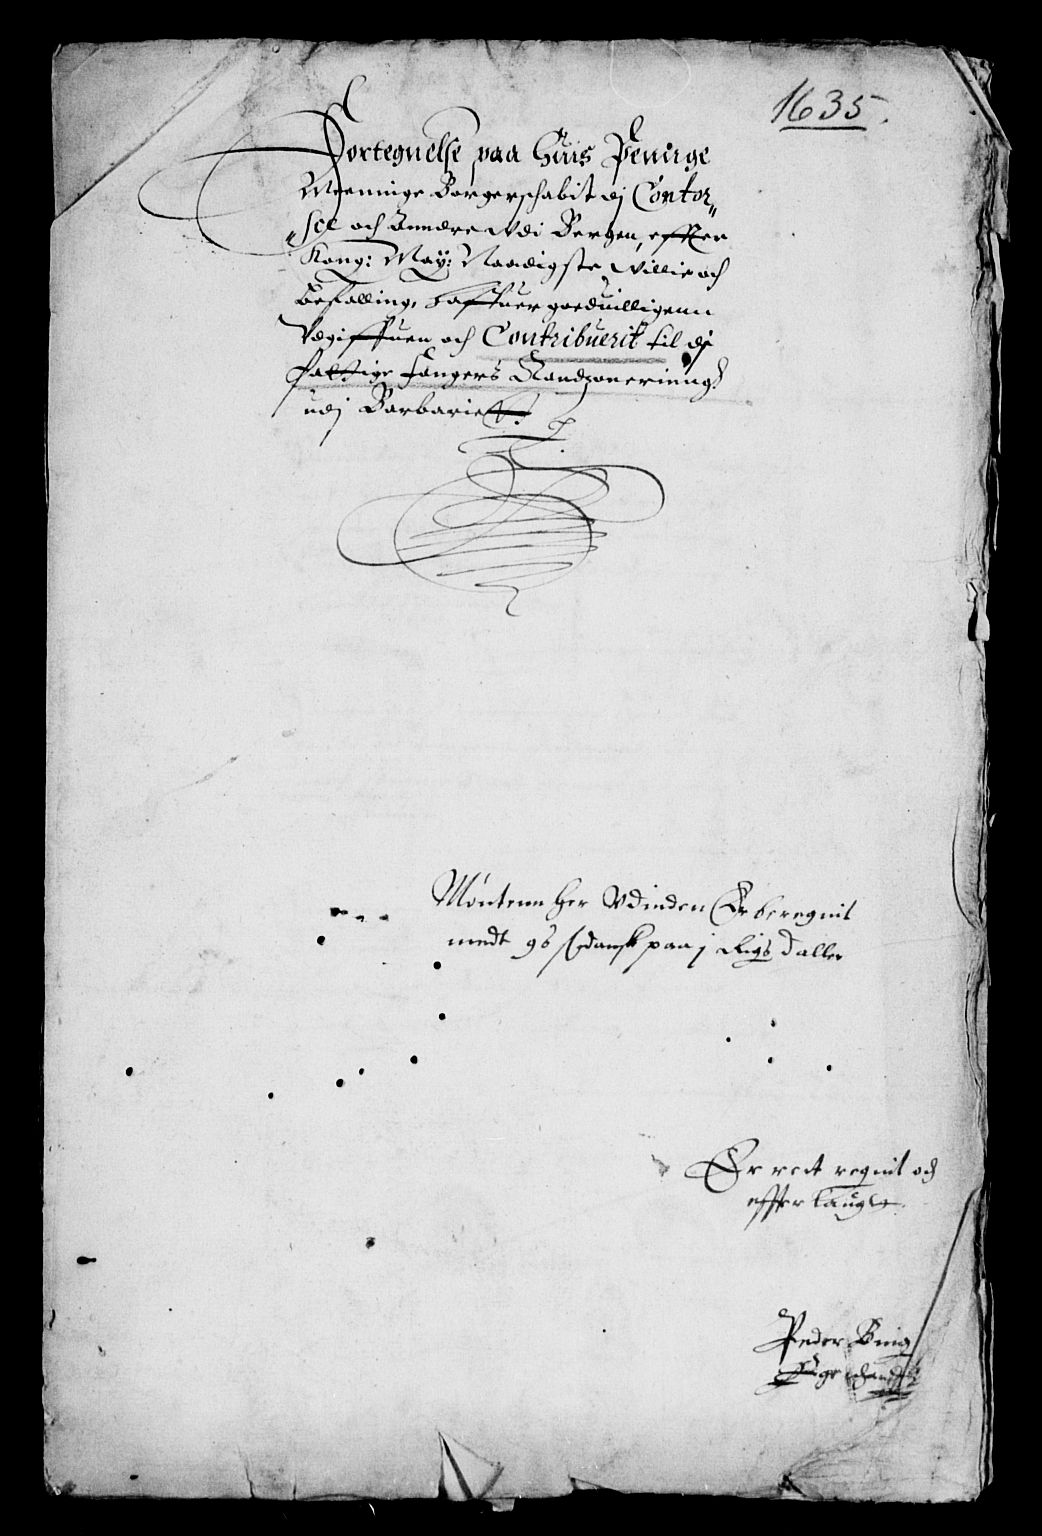 1635.
Fortegnelse paa Huis Penirge
Meeninge Borgerschabit dj Contor„
„sce och Anndre Udi Bergen, effter
Kong: May: Naadigste Villie och
Befalling, haffuer goeduilligenn
Udgiffuen och Contribuerit til dj
fattige Fangers Randzonering
udj Barbariet.
Møntenn her Udinden Er beregnit
medt 96 s danske paa j Rigs daller
Er rect regnit och
effter laugt.
Peder